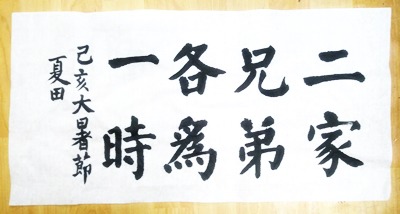 二家
兄弟
各為
一時
己亥大暑節
夏田